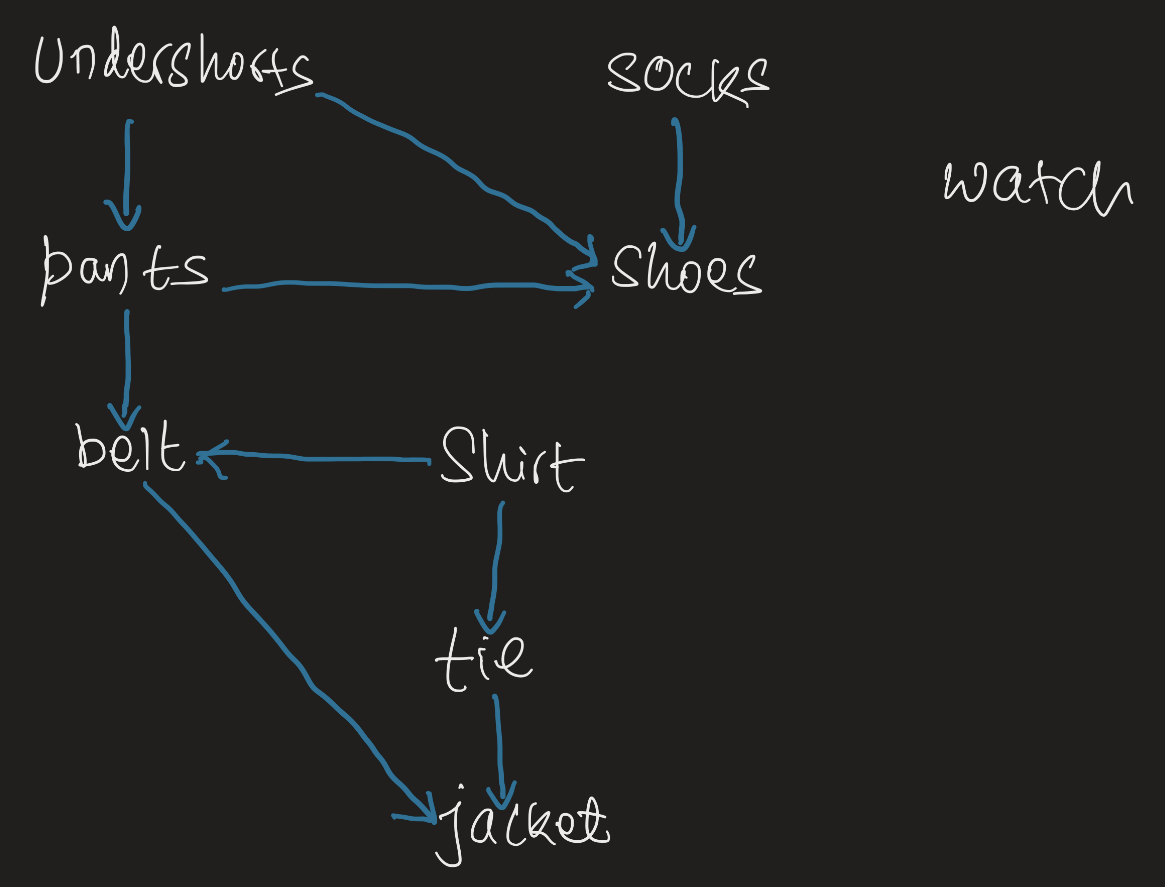 Undershorts
socks
watch
pants
Shoes
belt
Shirt
tie
jacket